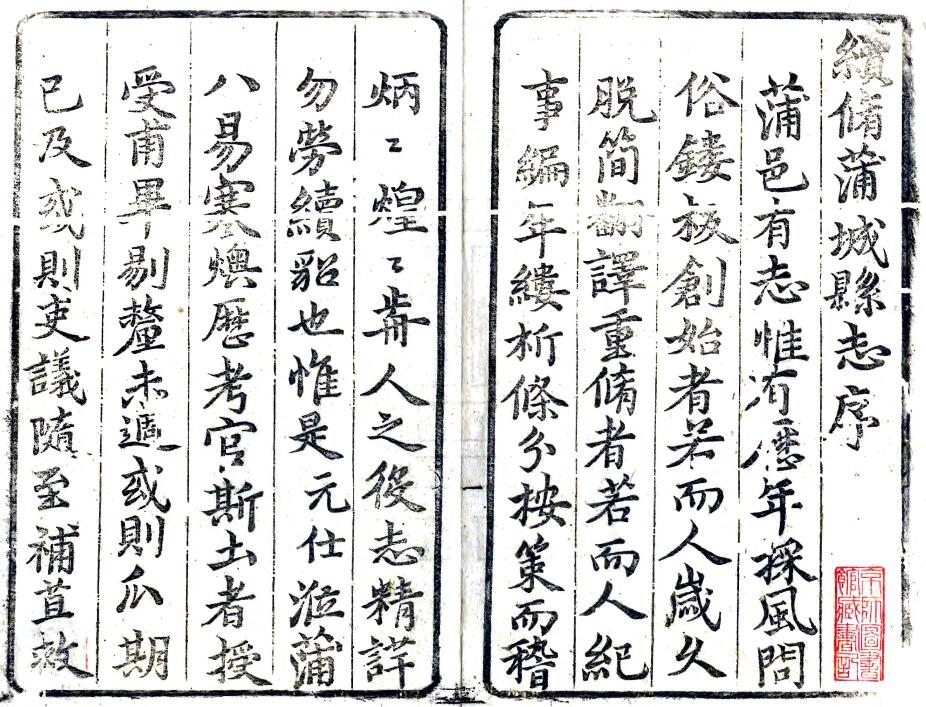 續脩蒲城縣志序
蒲邑有志惟有歷年採風問
俗鏤板創始者若而人歲久
脫簡翻譯重脩者若而人紀
事編年縷析條分按策而稽
炳〻煌〻前人之役志精詳
勿勞續貂也惟是元仕涖蒲
八易寒燠歷考官斯土者授
受甫畢剔釐未遑或則瓜期
已及或則吏議隨至補苴救